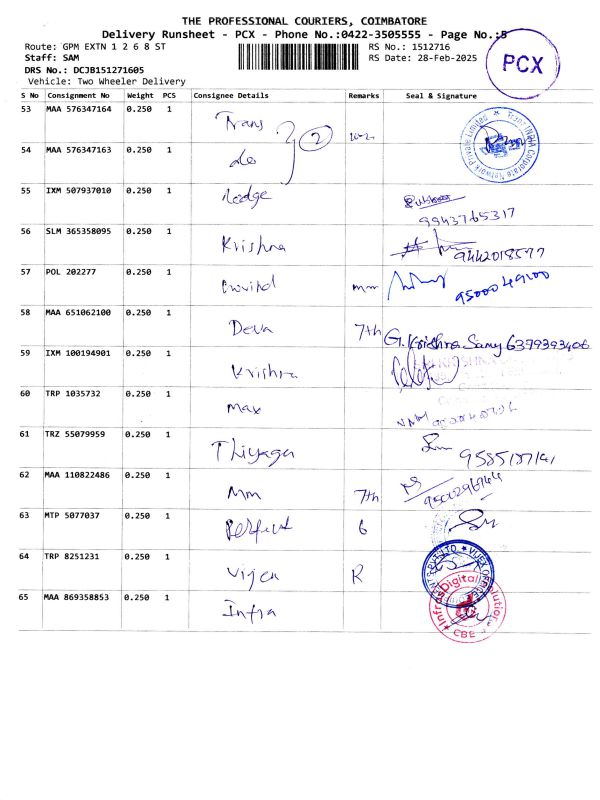 THE PROFESSIONAL COURIERS, COIMBATORE
Delivery Runsheet - PCX - Phone No.:0422-3505555 - Page No.:5
Route: GPM EXTN 1 2 6 8 ST
RS No.: 1512716
Staff: SAM
RS Date: 28-Feb-2025
PCX
DRS No.: DCJB151271605
Vehicle: Two Wheeler Delivery
S No Consignment No Weight PCS Consignee Details Remarks Seal & Signature
53 MAA 576347164 0.250 1 Trans 2
54 MAA 576347163 0.250 1 do
55 IXM 507937010 0.250 1 9943765317
56 SLM 365358095 0.250 1 Krishna 9442018577
57 POL 202277 0.250 1 mm 9500049400
58 MAA 651062100 0.250 1 Deva 7th G. Krishna Samy 6379393406
59 IXM 100194901 0.250 1 Krishna
60 TRP 1035732 0.250 1 Max
61 TRZ 55079959 0.250 1 Thiyagu
62 MAA 110822486 0.250 1 Mm 7th
63 MTP 5077037 0.250 1 Perfect 6
64 TRP 8251231 0.250 1 Vijex R
65 MAA 869358853 0.250 1 Infra
CBE